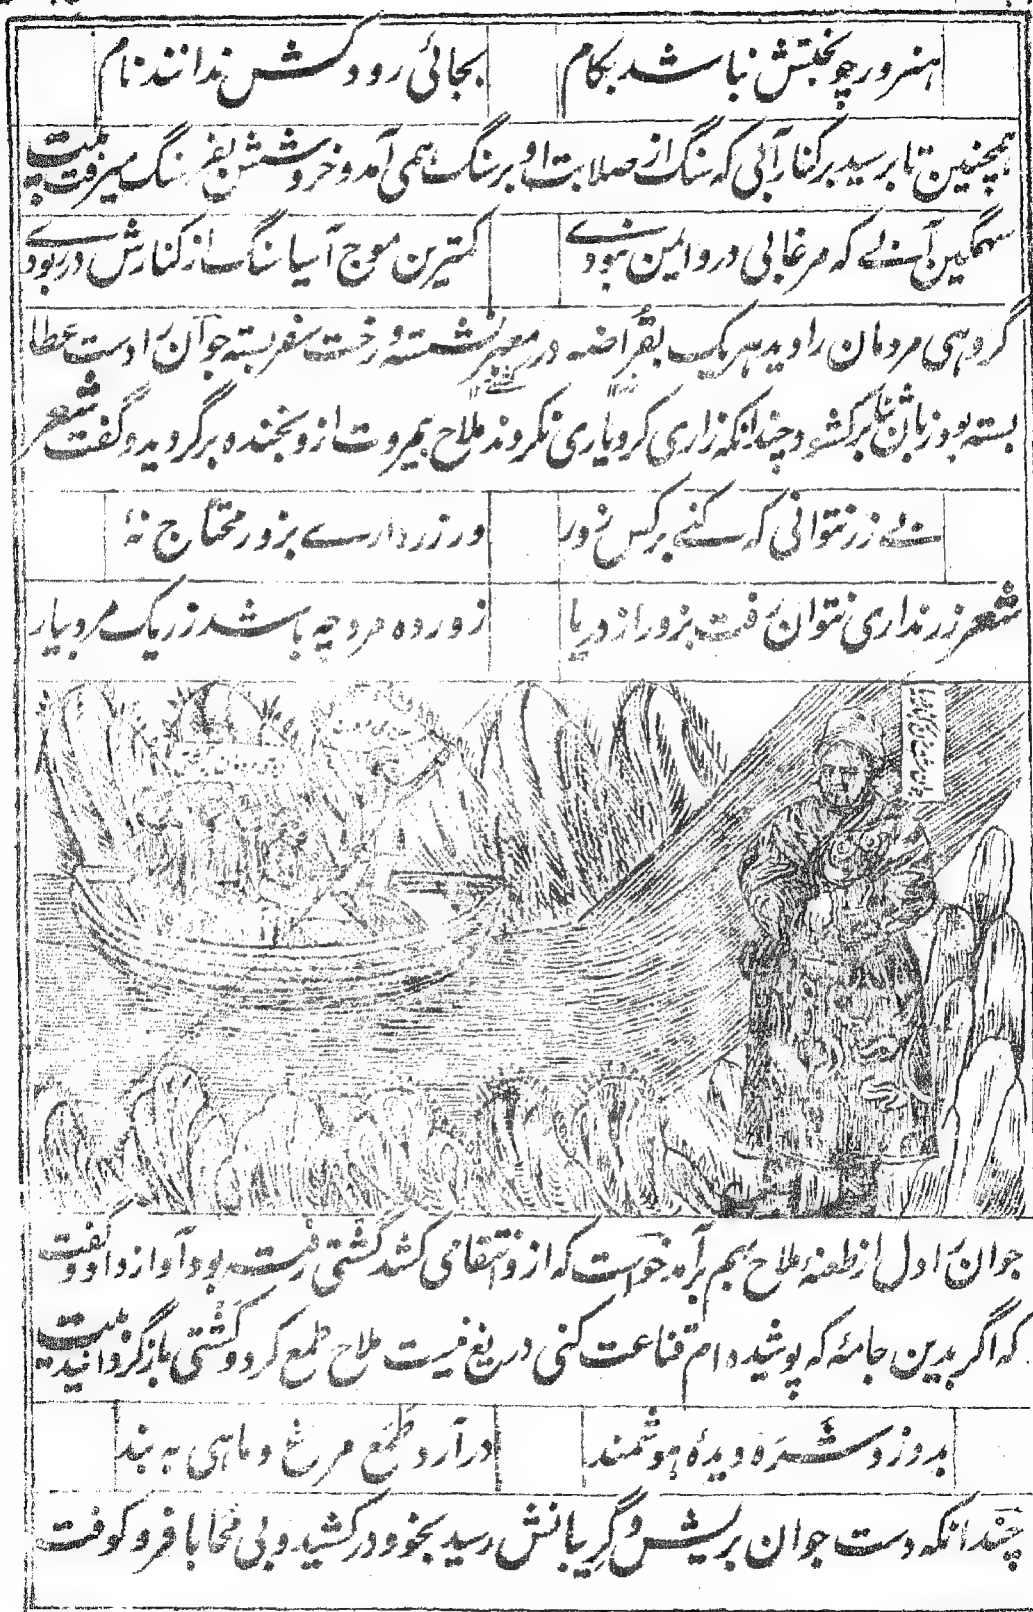 هنرور چو بختش نباشد بکام بجائی رود کش ندانند نام
همچنین تا برسید بر کنار آبی که سنگ از صلابت او بر سنگ همی آمد و خروشش بفرسنگ میرفت بیت
سهمگین آبے که مرغابی درو ایمن نبودے کمترین موج آسیا سنگ از کنارش در ربودے
گروهی مردمان را دید هر یک بقراضه در معبر نشسته و رخت سفر بسته جوان را دست عطا
بسته بود زبان ثنا برکشود چندانکه زاری کرد یاری نکردند ملاح بیمروت ازو بخنده برگردید و گفت شعر
بے زر نتوانی که کنے بر کس زور ور زر دارے بزور محتاج نۂ
شعر زر نداری نتوان رفت بزور از دریا زور ده مرد چه باشد زر یک مرد بیار
جوان را دل از طعنۂ ملاح بهم برآمد خواست که ازو انتقامی کشد کشتی رفته بود آواز داد و گفت
که اگر بدین جامۂ که پوشیده ام قناعت کنی دریغ نیست ملاح طمع کرد و کشتی بازگردانید بیت
بدوزد شره دیدۂ هوشمند درآرد طمع مرغ و ماهی به بند
چندانکه دست جوان بریش و گریبانش رسید بخود درکشید و بی محابا فرو کوفت